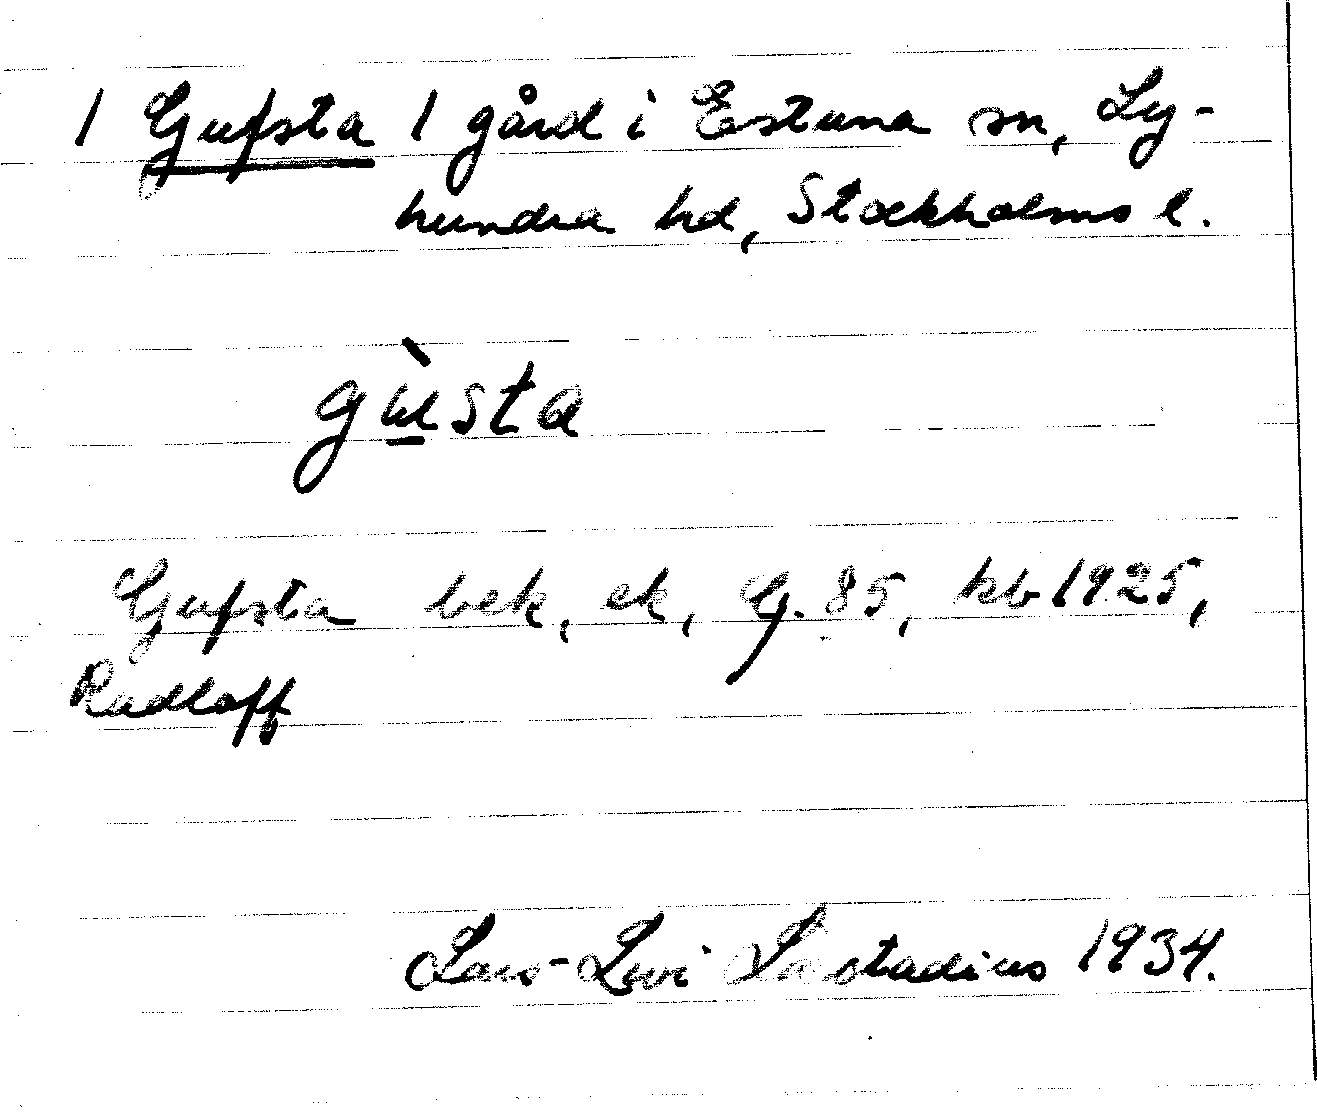 1 Gufsta 1 gård i Estuna sn, Ly-
hundra hd, Stockholms l.
gùsta
Gufsta bek, ek, G. 85, kb 1925,
Rudloff
Lars-Levi Læstadius 1934.